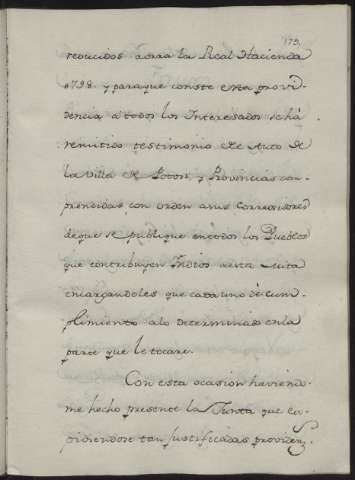 175.
reducidos aora la Real Hacienda
y para que conste esta provi-
dencia a todos los Interesados se há
remitido testimonio de Auto de
la Villa de Potosi, y Provincias com-
prendidas, con orden a sus Corregidores
de que se publique en todos los Pueblos
que contribuyen Indios a esta Mita
encargandoles que cada uno dè cum-
plimiento a lo determinado en la
parte que le tocare.
Con esta ocasion haviendo-
me hecho presente la Junta que ex-
pidiendose tan justificadas providen-